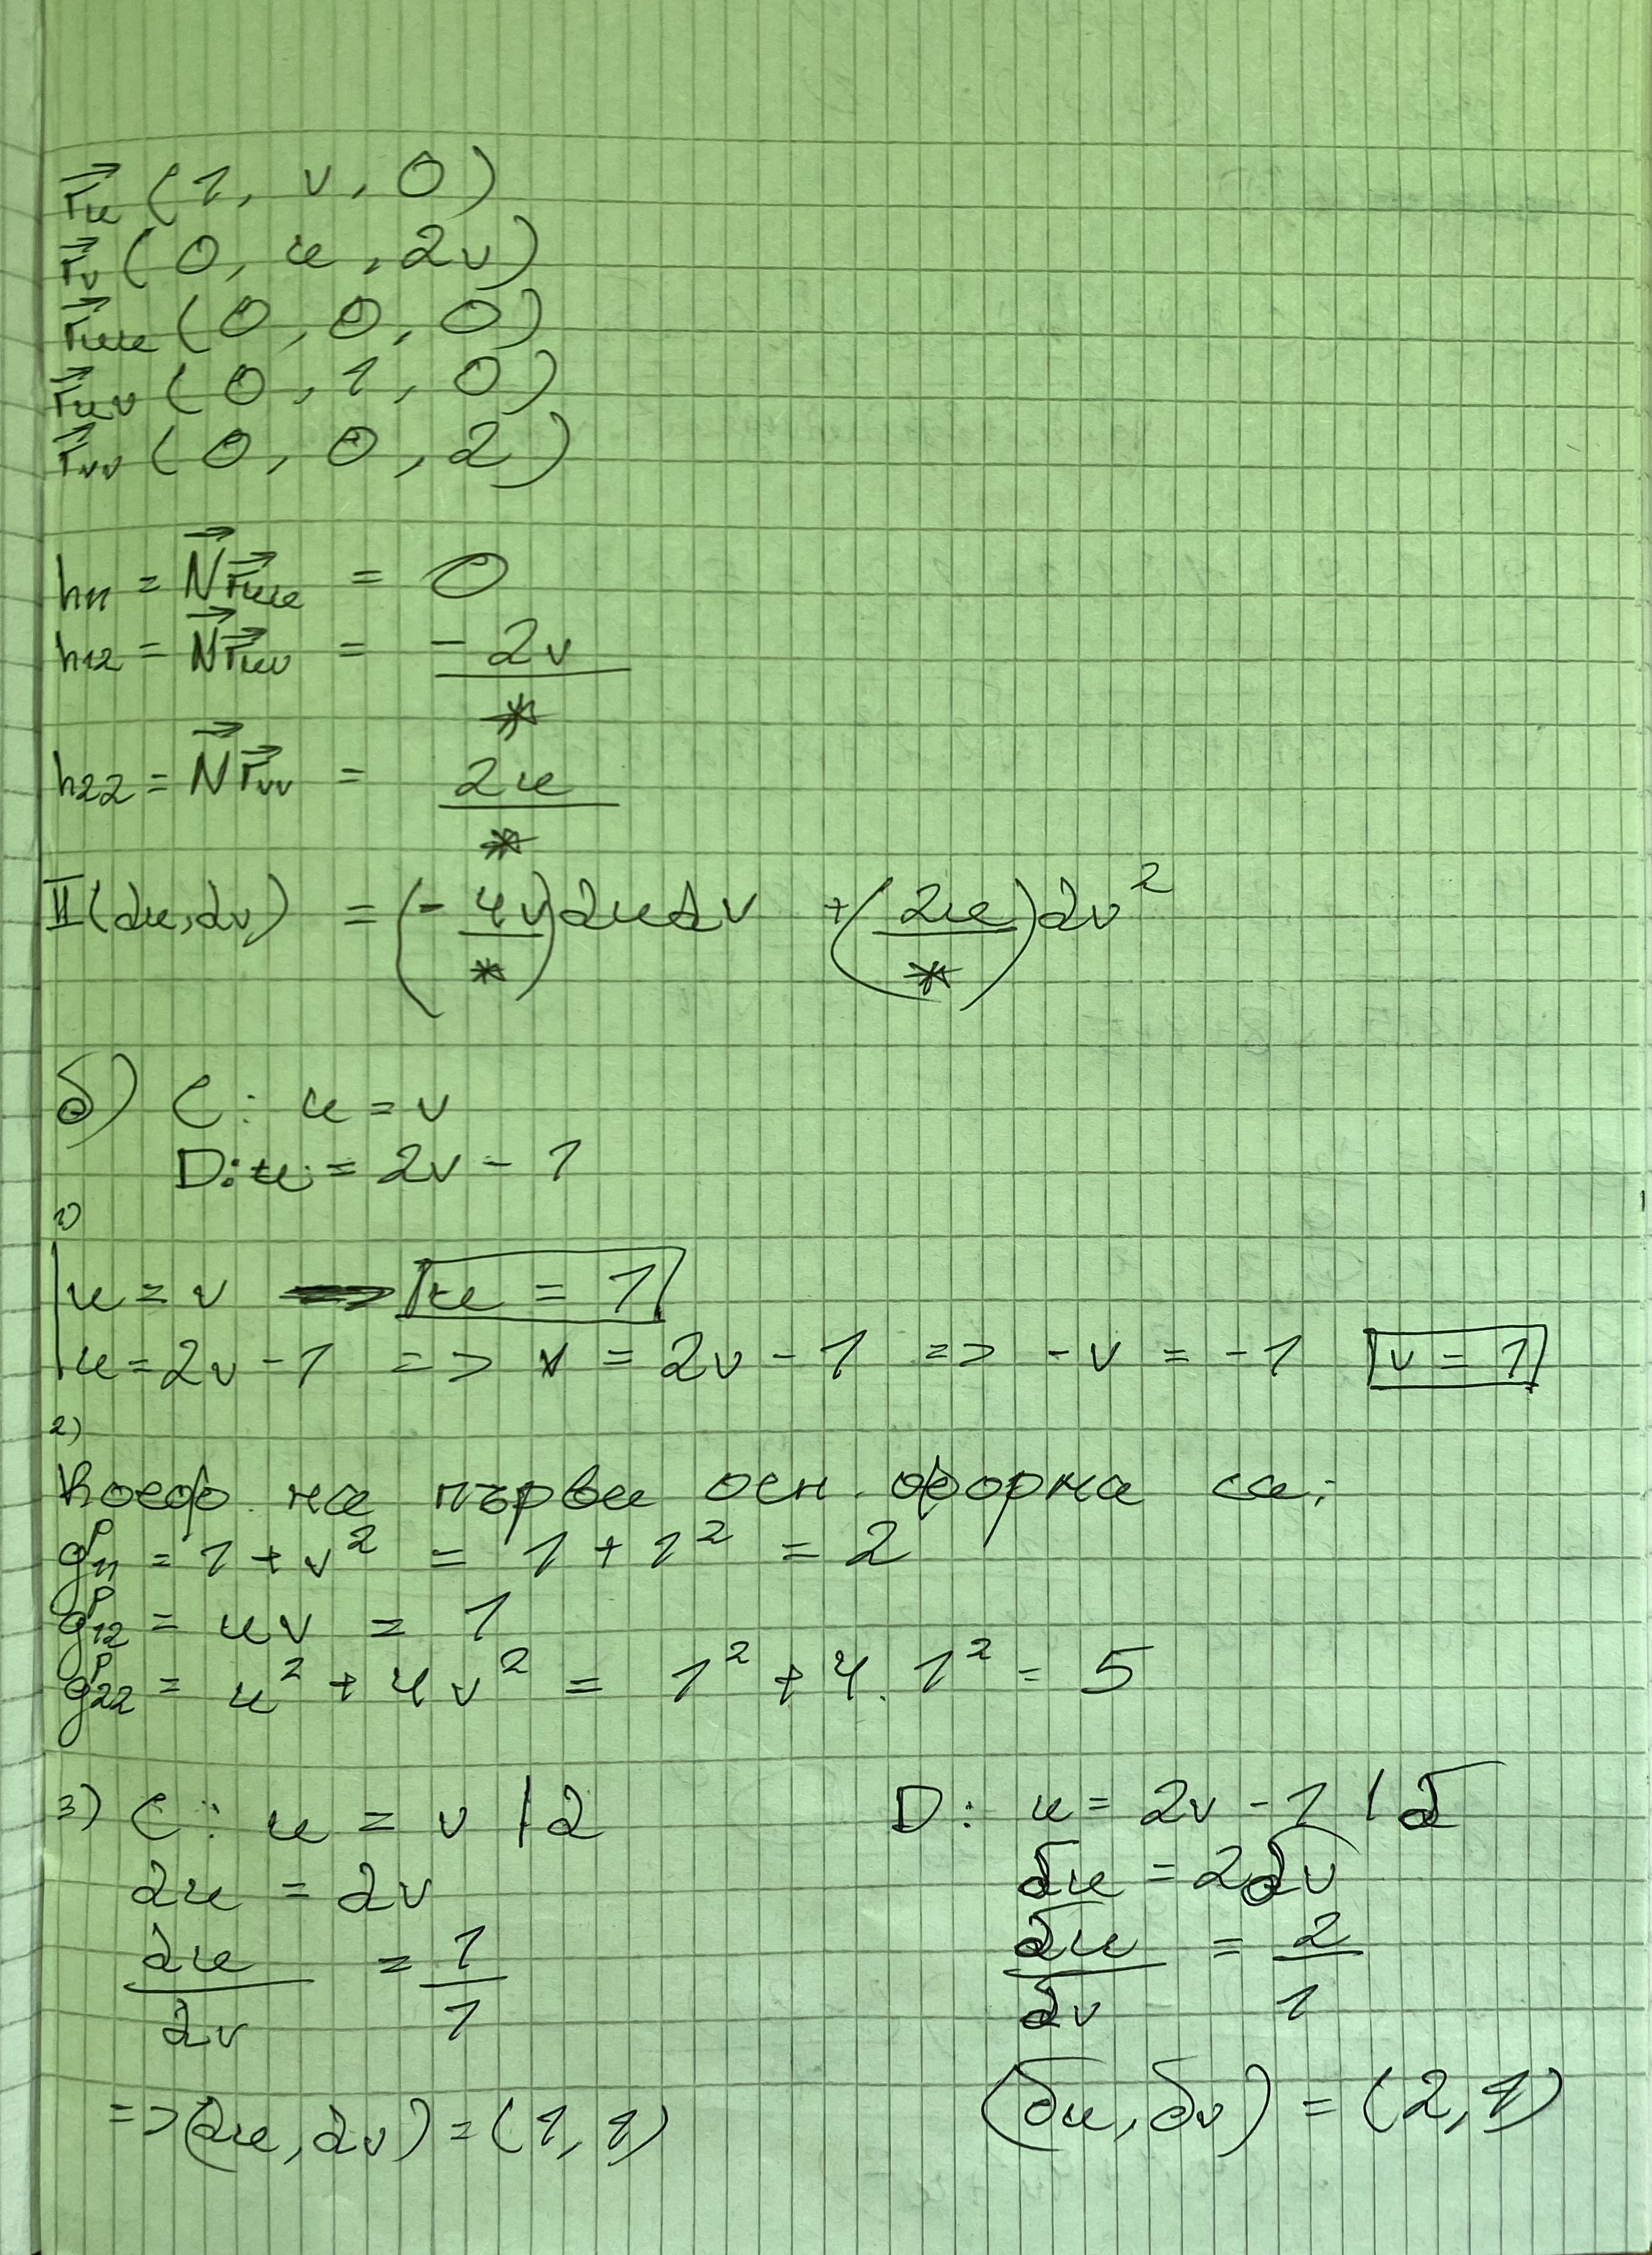 r⃗u (1, v, 0)
r⃗v (0, u, 2v)
r⃗uu (0, 0, 0)
r⃗uv (0, 1, 0)
r⃗vv (0, 0, 2)
h11 = N⃗ r⃗uu = 0
h12 = N⃗ r⃗uv = -2v/*
h22 = N⃗ r⃗vv = 2u/*
II(du,dv) = (-4v/*)dudv + (2u/*)dv²
б) C: u = v
D: u = 2v - 1
1)
u = v => u = 1
u = 2v - 1 => v = 2v - 1 => -v = -1 v = 1
2)
Коеф. на първа осн. форма са:
gᵖ11 = 1 + v² = 1 + 1² = 2
gᵖ12 = uv = 1
gᵖ22 = u² + 4v² = 1² + 4.1² = 5
3) C: u = v |d D: u = 2v - 1 |δ
du = dv δu = 2δv
du/dv = 1/1 δu/δv = 2/1
=> (du, dv) = (1, 1) (δu, δv) = (2, 1)